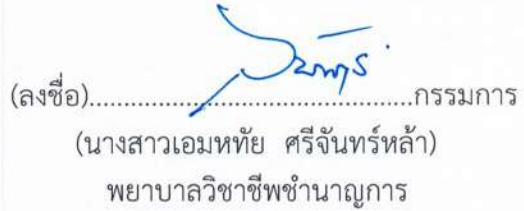 (ลงชื่อ)..........................................กรรมการ
(นางสาวเอมหทัย ศรีจันทร์หล้า)
พยาบาลวิชาชีพชำนาญการ